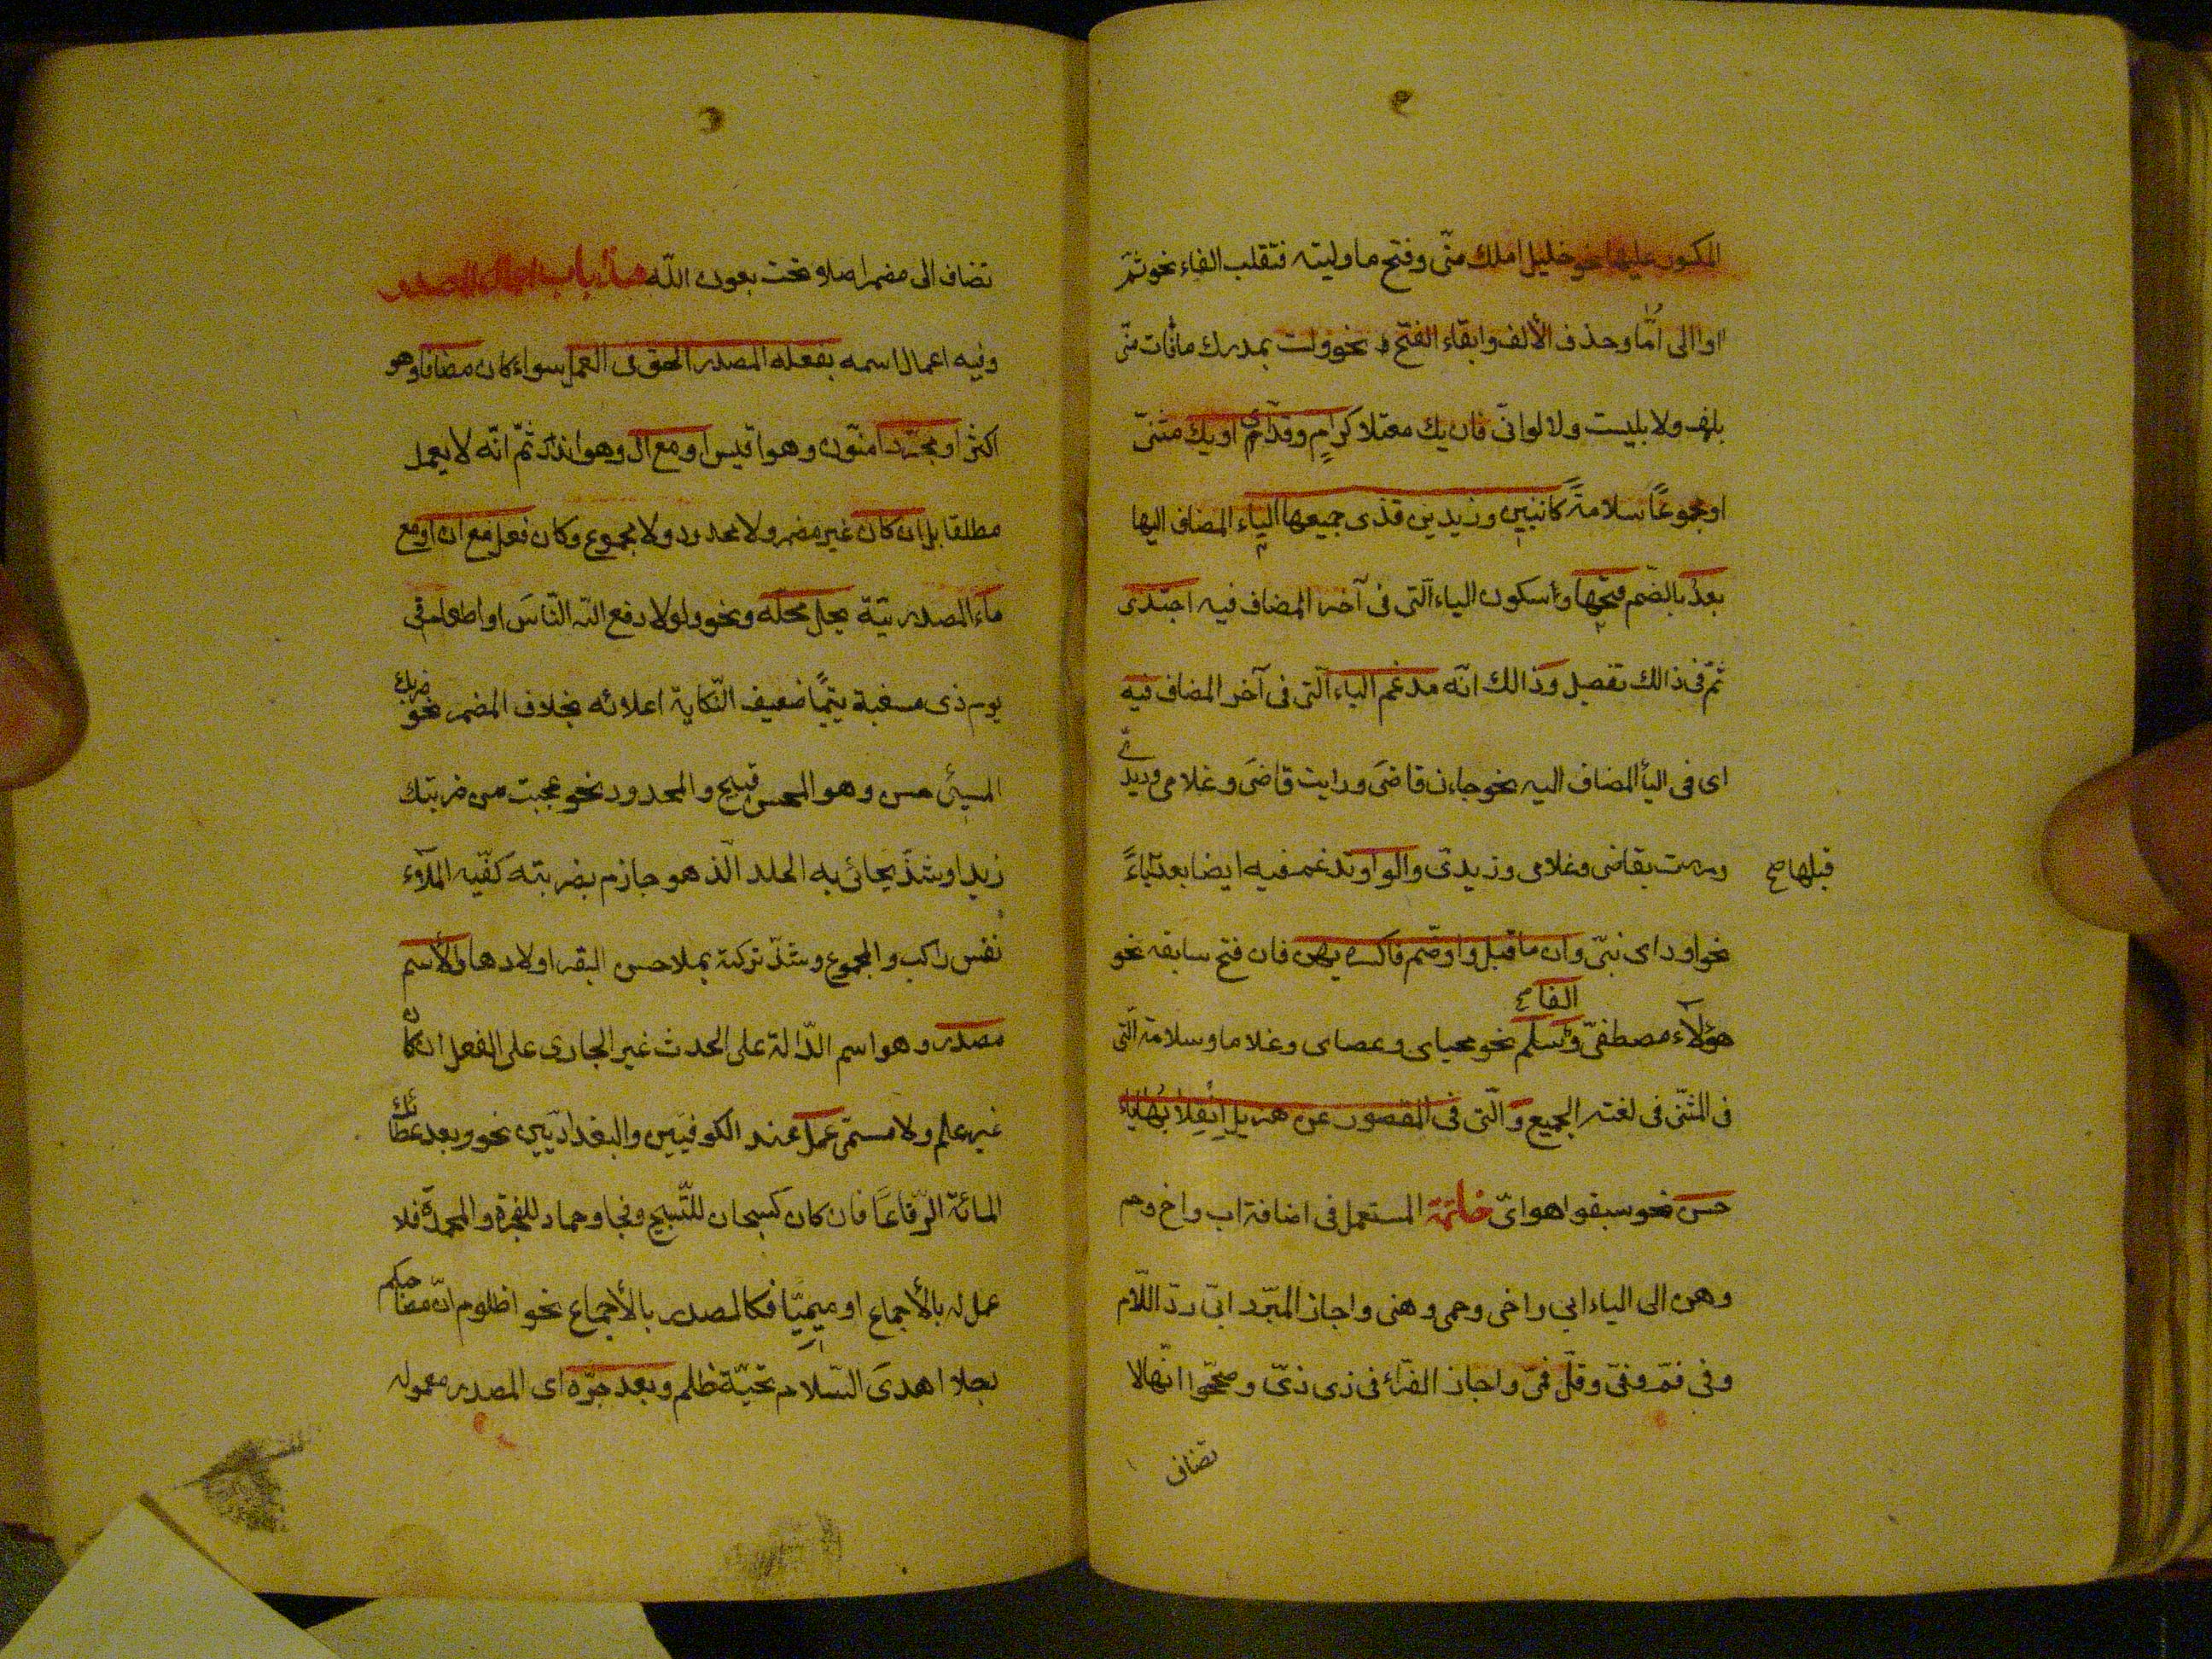 المكسور عليها نحو خليل املك منّى وفتح ما وليته فتقلب الفاء نحو ثمّ
اوا الى امّا وحذف الألف وابقاء الفتح نحو ولست بمدرك ما فات منّى
بلهف ولا بليت ولا لوانّى فان يك معتلا كرامٍ وقذّى او يك مثنىّ
او مجموعًا سلامةً كابنين وزيدين فذى جميعها الياء المضاف اليها
بعدُ بالضّم فتحها واسكون الياء الّتى فى آخر المضاف فيه اجتذى
ثمّ فى ذالك تفصيل وذالك انّه مدغم الياء الّتى فى آخر المضاف فيه
اى فى اليأ المضاف اليه نحو جاءن قاضىَ ورايت قاضىَ وغلامى وزيدىّ
ومررت بقاضى وغلامى وزيدىّ والواو تدغم فيه ايضا بعد ياءً
قبلها صح
نحو او داى نبىّ وان ما قبل واو ضّم فاكسره يهن فان فتح سابقه نحو
هؤلاء مصطفىّ وسلّم نحو محياى وعصاى وغلاما وسلامة الّتى
الفا
فى المثنّى فى لغته الجميع و الّتى فى المقصور عن هذيل انقلابُها ياء
حسن نحو سبقوا هوىّ خاتمة المستعمل فى اضافة اب واخ وحم
وهن الى الياء ابى واخى وحمى وهنى واجاز المبّرد ابىّ ردّ اللّام
وفى فمّ وفىّ وقلّ فمّى واجاز الفرّاء فى ذى ذىّ وصحّحوا انّها لا
تضاف
تضاف الى مضمر اصلا و تمت بعون اللّه هذا باب اعمال المصدر
وفيه اعمال اسمه بفعله المصدر الحق فى العمل سواء كان مضافا وهو
اكثر او مجرّدا منّون وهو اقيس او مع ال وهو انذر ثمّ انّه لا يعمل
مطلقا بل ان كان غير مضمر ولا محدود ولا مجموع وكان فعل مع ان او مع
ماء المصدريّة يحل محلّه ونحو ولولا دفع اللّه النّاسَ او اطعام فى
يوم ذى مسغبة يتيمًا ضعيف النّكاية اعدائه بخلاف المضمر نحو ضربك
المسيئ حسن وهو المحسن قبيح والمحدود نحو عجبت من ضربتك
زيدا وشذّ يحائى به الجلد الّذ هو حازم بضربته كفّيه الملاء
نفس راكب والمجموع وشذّ تركته بملاحس البقر اولادها والأسم
مصدر وهو اسم الدّالة على الحدث غير الجارى على الفعل ان كان
غير علم ولا مسمّى عمل عند الكوفيّين والبغداديّين نحو وبعد عطائك
المائة الرّقاعًا فان كان كسبحان للتّسبيح وفجا وحماد للفجرة والمحمدة فلا
عمل له بالأجماع او ميميّا فكالمصدر بالأجماع نحو اظلوم انّ مصابكم
رجلا اهدىَ السّلام تحيّة ظلم وبعد جرّه اى المصدر معموله